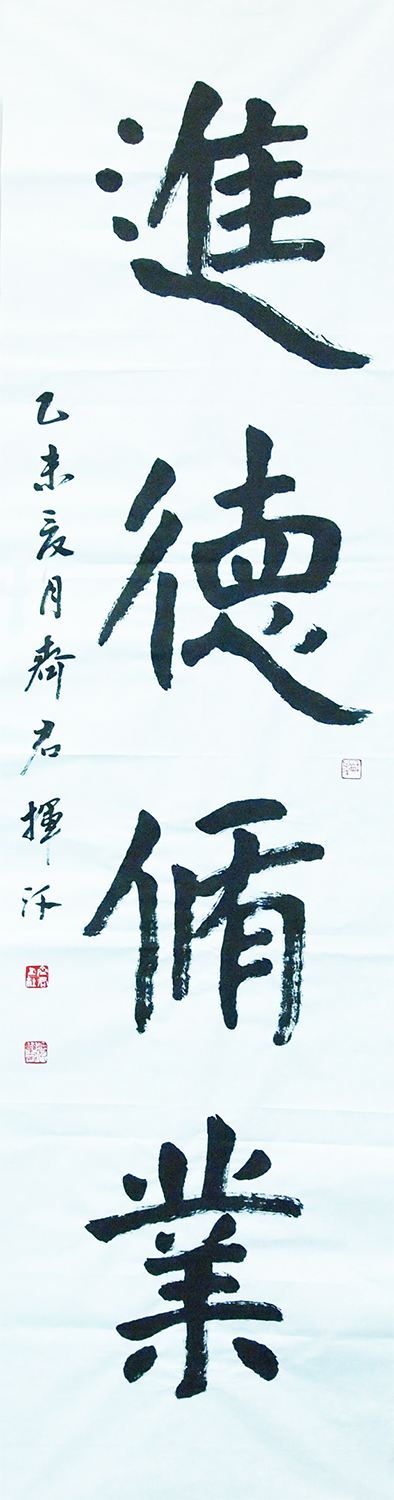 進德脩業
乙未夏月齊君揮汗